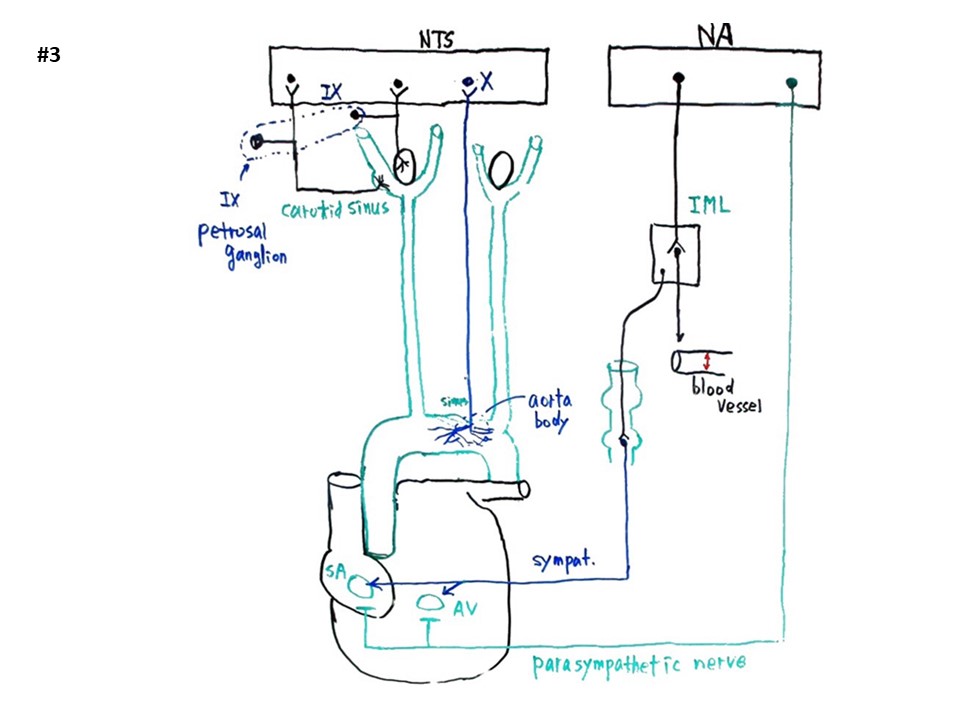 #3
NTS
NA
X
IX
IX
petrosal
ganglion
carotid sinus
IML
blood
vessel
sinus
aorta
body
sympat.
SA
AV
parasympathetic nerve